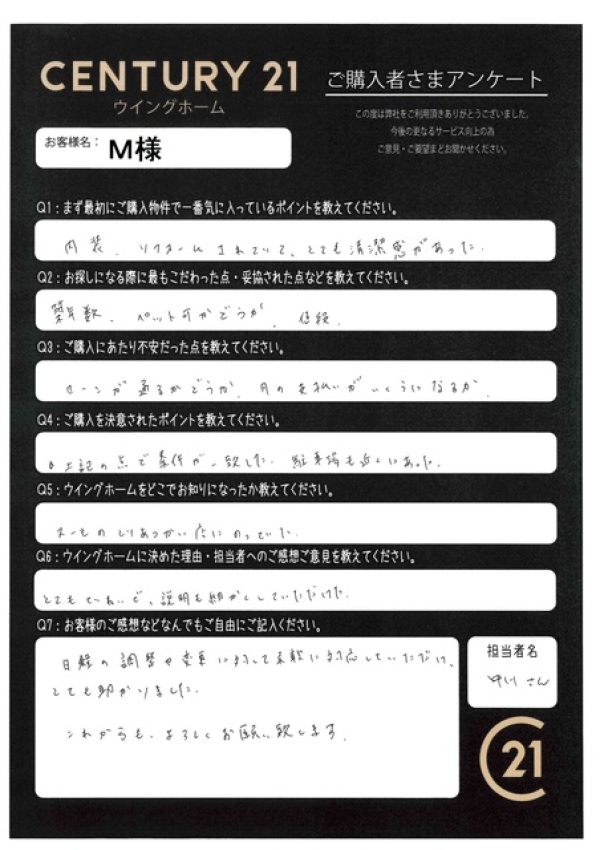 CENTURY 21
ウイングホーム
ご購入者さまアンケート
この度は弊社をご利用頂きありがとうございました。
今後の更なるサービス向上の為
ご意見・ご要望まどお聞かせください。
お客様名： M様
Q1：まず最初にご購入物件で一番気に入っているポイントを教えてください。
内装、リフォームされていて、とても清潔感があった。
Q2：お探しになる際に最もこだわった点・妥協された点などを教えてください。
築年数、ペット可かどうか、値段、
Q3：ご購入にあたり不安だった点を教えてください。
ローンが通るかどうか、月の支払いがいくらになるか
Q4：ご購入を決意されたポイントを教えてください。
上記の点で条件が一致した。駐車場も近くにあった。
Q5：ウイングホームをどこでお知りになったか教えてください。
スーモのとりあつかい店にのっていた。
Q6：ウイングホームに決めた理由・担当者へのご感想ご意見を教えてください。
とてもていねいで、説明も細かくしていただけた。
Q7：お客様のご感想などなんでもご自由にご記入ください。
日程の調整や変更に対して柔軟に対応していただけ、
とても助かりました。
これからも、よろしくお願い致します。
担当者名
中川さん
21